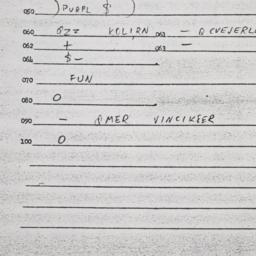 050 ) PURPL $ )
060 ozz VOLIRN 061 - Q CVEJERL
062 + 063 -
064 $ -
070 FUN
080 O
090 - QMER VINCIKEER
100 O